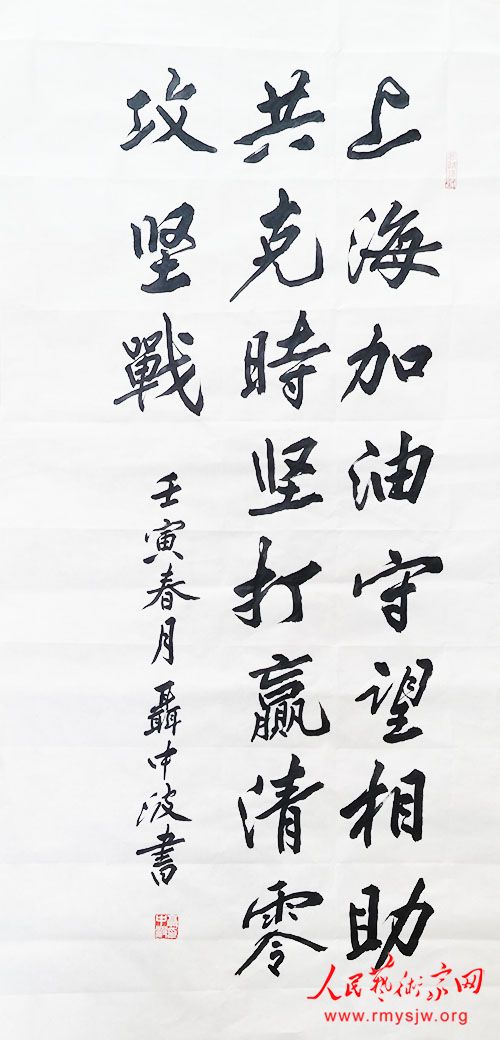 上海加油守望相助
共克時坚打赢清零
攻坚戰
壬寅春月聶中波書
人民藝術家网
www.rmysjw.org